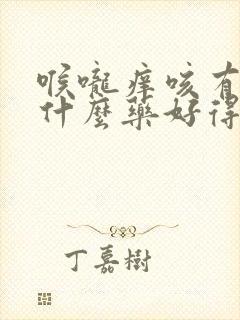 喉嚨痒咳有
什麼藥好得
丁嘉樹